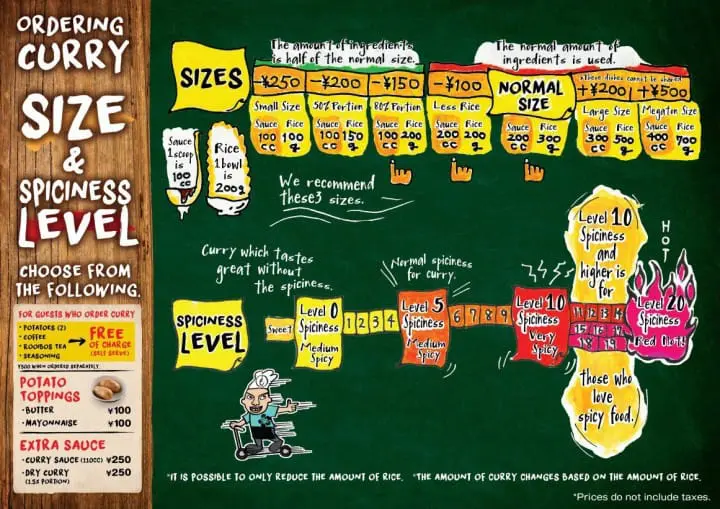 ORDERING
CURRY
SIZE
&
SPICINESS
LEVEL
CHOOSE FROM
THE FOLLOWING.
FOR GUESTS WHO ORDER CURRY
• POTATOES (2)
• COFFEE
• ROOIBOS TEA
• SEASONING
FREE
OF CHARGE
(SELF SERVE)
¥500 WHEN ORDERED SEPARATELY
POTATO
TOPPINGS
• BUTTER ¥100
• MAYONNAISE ¥100
EXTRA SAUCE
• CURRY SAUCE (110CC) ¥250
• DRY CURRY ¥250
(1.5X PORTION)
SIZES
The amount of ingredients
is half of the normal size.
The normal amount of
ingredients is used.
-¥250
Small Size
Sauce 100 cc
Rice 100 g
-¥200
50% Portion
Sauce 100 cc
Rice 150 g
-¥150
80% Portion
Sauce 100 cc
Rice 200 g
-¥100
Less Rice
Sauce 200 cc
Rice 200 g
NORMAL
SIZE
Sauce 200 cc
Rice 300 g
※These dishes cannot be shared.
+¥200
Large Size
Sauce 300 cc
Rice 500 g
+¥500
Megaton Size
Sauce 400 cc
Rice 700 g
Sauce
1 scoop
is
100
cc
Rice
1 bowl
is
200g
We recommend
these3 sizes.
Curry which tastes
great without
the spiciness.
Normal spiciness
for curry.
SPICINESS
LEVEL
Sweet
Level 0
Spiciness
Medium
Spicy
1 2 3 4
Level 5
Spiciness
Medium
Spicy
6 7 8 9
Level 10
Spiciness
Very
Spicy
Level 10
Spiciness
and
higher is
for
11 12 13 14
15 16 17
18 19
those who
love
spicy food.
HOT
Level 20
Spiciness
*IT IS POSSIBLE TO ONLY REDUCE THE AMOUNT OF RICE. *THE AMOUNT OF CURRY CHANGES BASED ON THE AMOUNT OF RICE.
*Prices do not include taxes.